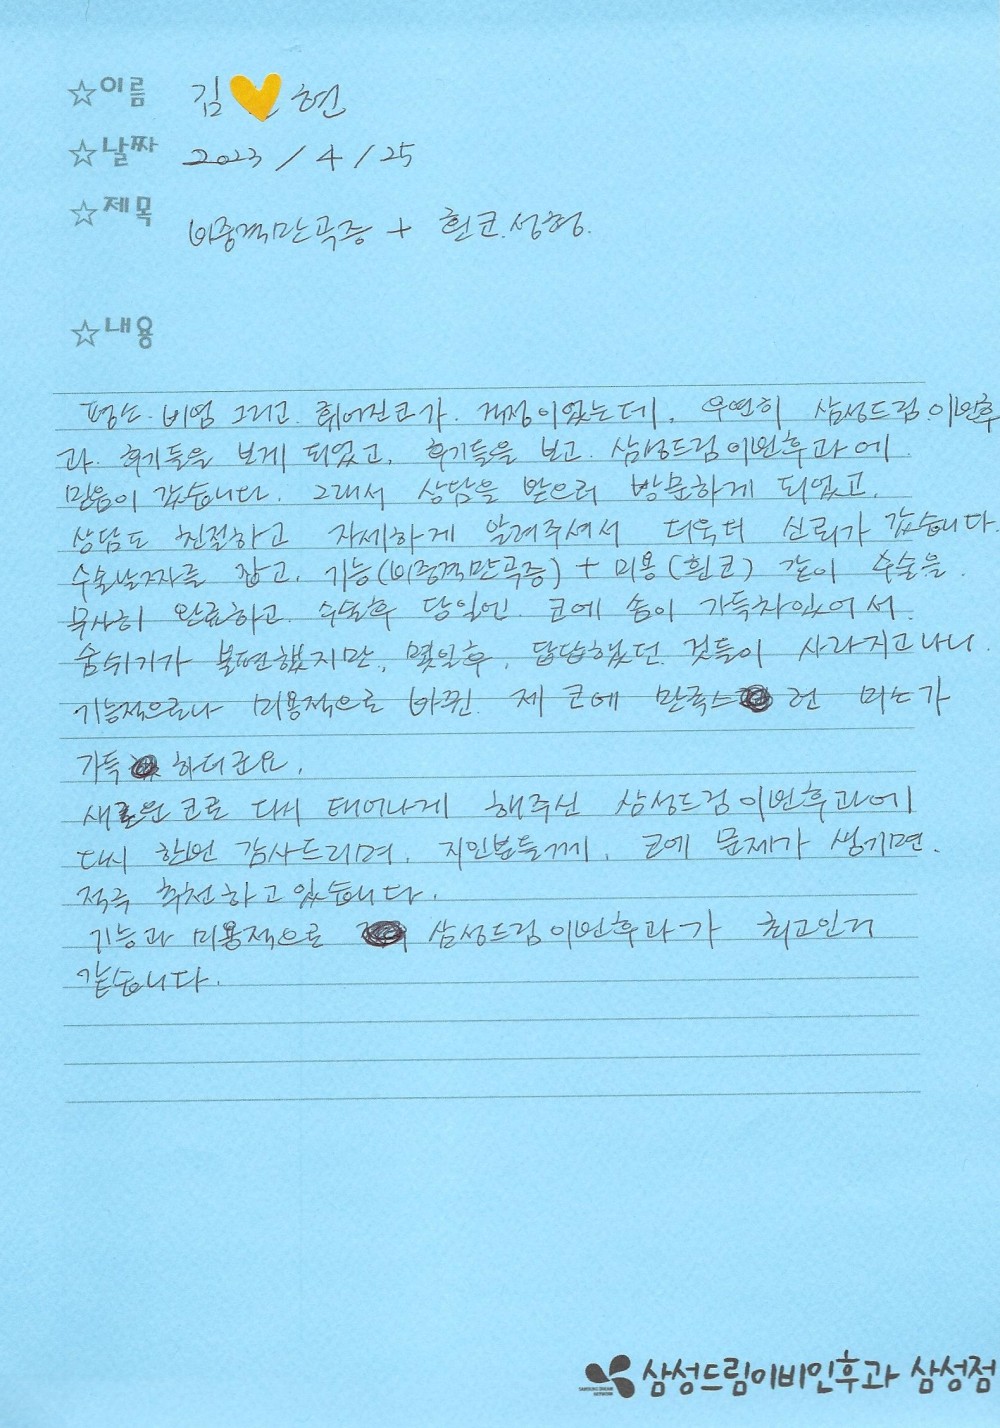 ☆이름 김 현
☆날짜 2023 / 4 / 25
☆제목 비중격만곡증 + 휜코.성형.
☆내용
평소. 비염 그리고. 휘어진코가. 걱정이었는데, 우연히 삼성드림.이비인후
과. 후기들을 보게 되었고, 후기들을 보고. 삼성드림이비인후과에.
믿음이 갔습니다. 그래서 상담을 받으러 방문하게 되었고.
상담도 친절하고 자세하게 알려주셔서 더욱더 신뢰가 갔습니다.
수술날짜를 잡고, 기능(비중격만곡증) + 미용(휜코) 같이 수술을.
무사히 완료하고. 수술후 당일엔. 코에 솜이 가득차있어서.
숨쉬기가 불편했지만, 몇일후, 답답했던. 것들이 사라지고나니.
기능적으로나 미용적으로 바뀐. 제 코에 만족스 런 미소가
가득 하더군요.
새로운 코로 다시 태어나게 해주신 삼성드림이비인후과에
다시 한번 감사드리며, 지인분들께, 코에 문제가 생기면.
적극 추천하고있습니다.
기능과 미용적으로 삼성드림이비인후과가 최고인거
같습니다.
삼성드림이비인후과 삼성점
SAMSUNG DREAM
NETWORK